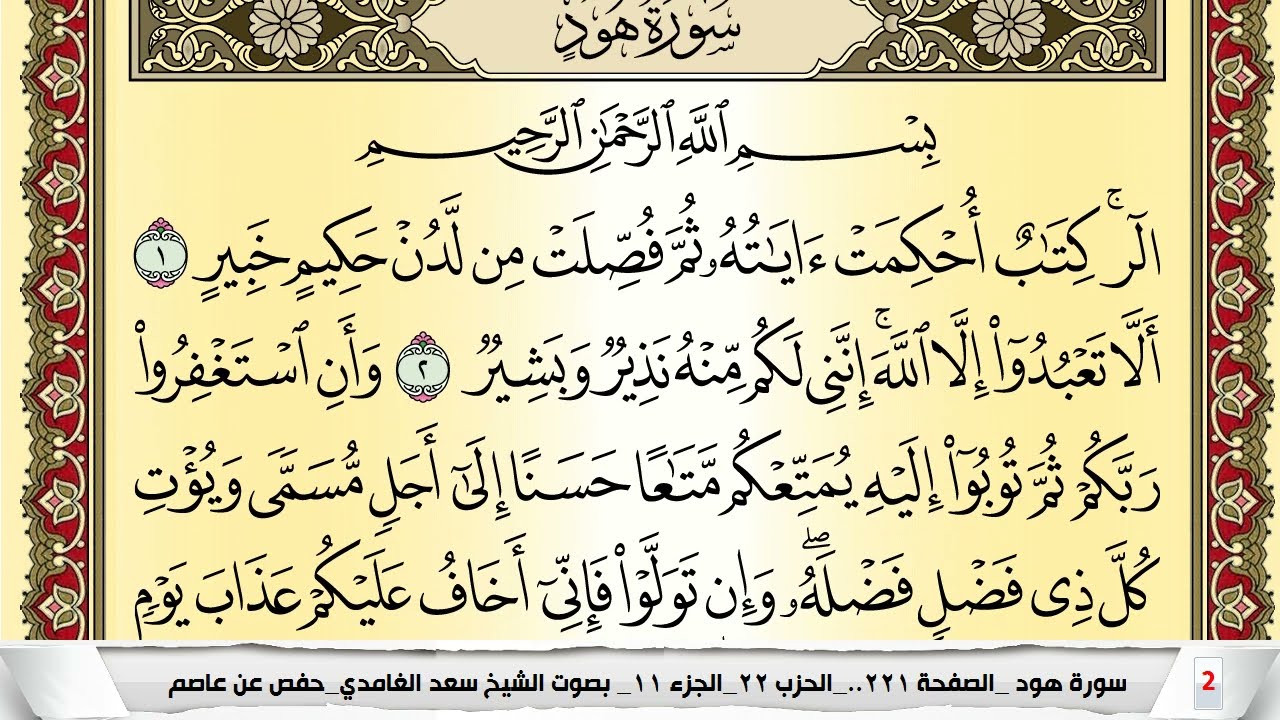 سُورَةُ هُودٍ
بِسْمِ ٱللَّهِ ٱلرَّحْمَٰنِ ٱلرَّحِيمِ
الٓرۚ كِتَٰبٌ أُحْكِمَتْ ءَايَٰتُهُۥ ثُمَّ فُصِّلَتْ مِن لَّدُنْ حَكِيمٍ خَبِيرٍ ١
أَلَّا تَعْبُدُوٓا۟ إِلَّا ٱللَّهَۚ إِنَّنِى لَكُم مِّنْهُ نَذِيرٌ وَبَشِيرٌ ٢ وَأَنِ ٱسْتَغْفِرُوا۟
رَبَّكُمْ ثُمَّ تُوبُوٓا۟ إِلَيْهِ يُمَتِّعْكُم مَّتَٰعًا حَسَنًا إِلَىٰٓ أَجَلٍ مُّسَمًّى وَيُؤْتِ
كُلَّ ذِى فَضْلٍ فَضْلَهُۥۖ وَإِن تَوَلَّوْا۟ فَإِنِّىٓ أَخَافُ عَلَيْكُمْ عَذَابَ يَوْمٍ
سورة هود _الصفحة ٢٢١.._الحزب ٢٢_الجزء ١١_ بصوت الشيخ سعد الغامدي_حفص عن عاصم
2